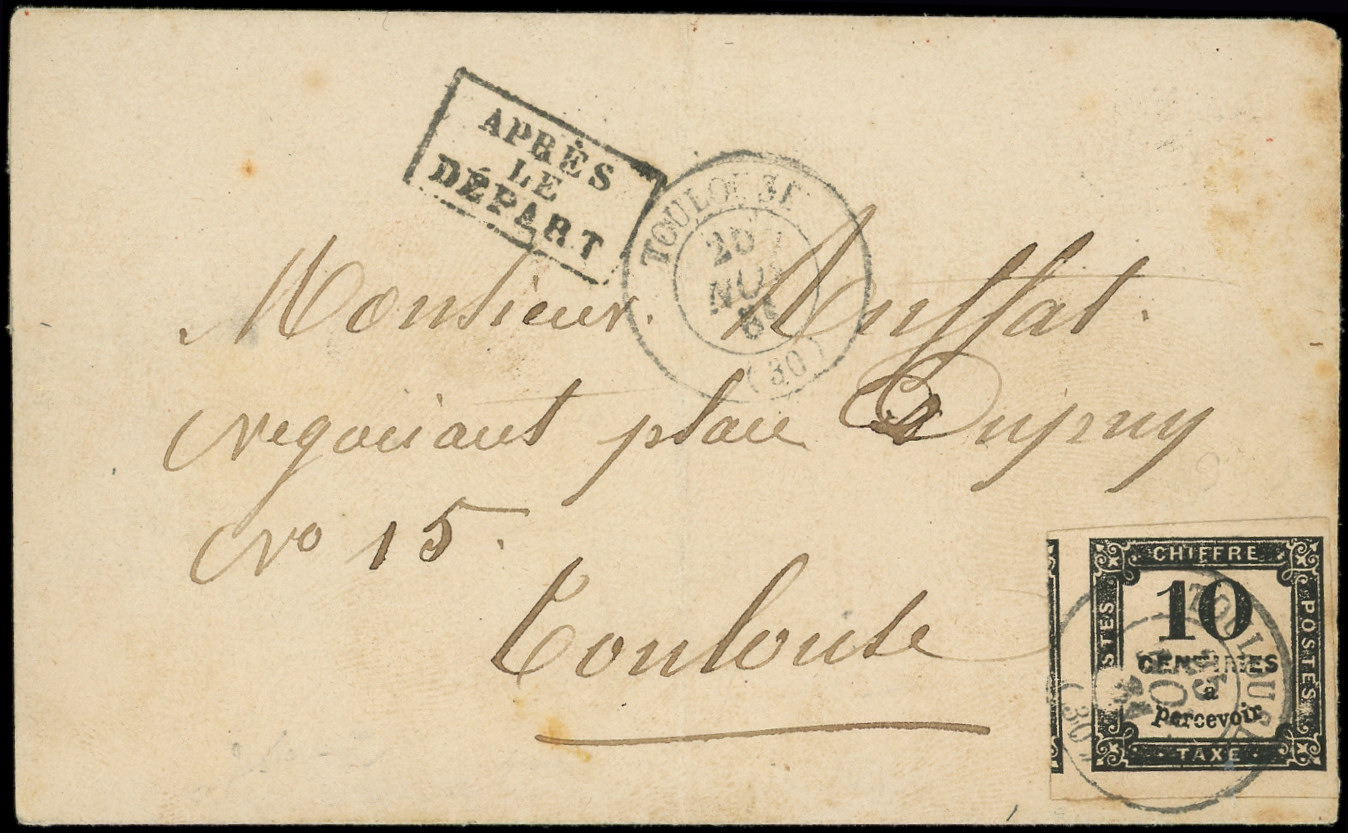 APRÈS
LE
DÉPART
TOULOUSE
25
NOV
(30)
Monsieur Auffat.
négociant place Dupuy
No 15.
Toulouse
CHIFFRE
10
CENTIMES
à
percevoir
TAXE
POSTES
TOULOUSE
25
NOV
(30)